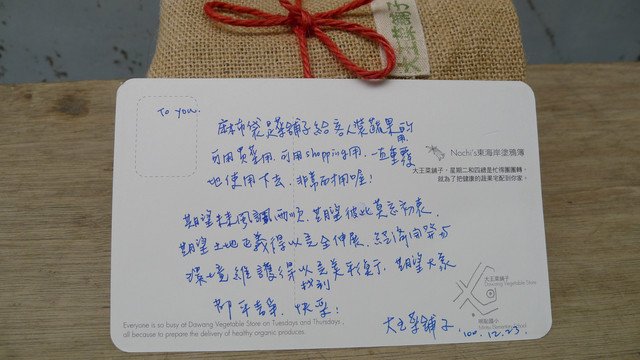 大王菜舖子
To you.
麻布袋是菜舖子給客人裝蔬果所用
可用買菜用、可用shopping用、一直重覆
地使用下去、非常耐用喔!
期望未來風調雨順、期望彼此莫忘初衷、
期望土地正義得以完全伸展、經濟向勞力
環境維護得以找到完美平衡、期望大家
都平安、快樂!
大王菜舖子 100.12.23.
Nochi's東海岸塗鴉簿
大王菜舖子,星期二和四總是忙得團團轉,
就為了把健康的蔬果宅配到你家。
大王菜舖子
Dawang Vegetable Store
明恥國小
Everyone is so busy at Dawang Vegetable Store on Tuesdays and Thursdays ,
all because to prepare the delivery of healthy organic produces.